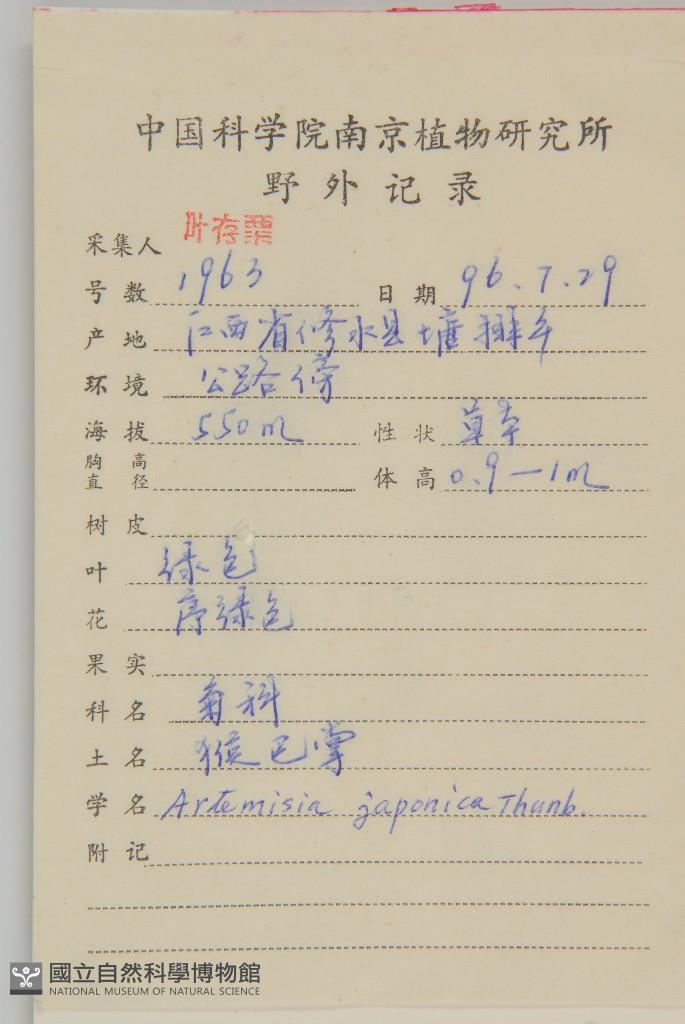 中国科学院南京植物研究所
野外记录
采集人 叶存粟
号数 1963 日期 96.7.29
产地 江西省修水县 乡
环境 公路傍
海拔 550m 性状 草本
胸高直径 体高 0.9—1m
树皮
叶 绿色
花 序绿色
果实
科名 菊科
土名 猴巴掌
学名 Artemisia japonica Thunb.
附记
國立自然科學博物館
NATIONAL MUSEUM OF NATURAL SCIENCE